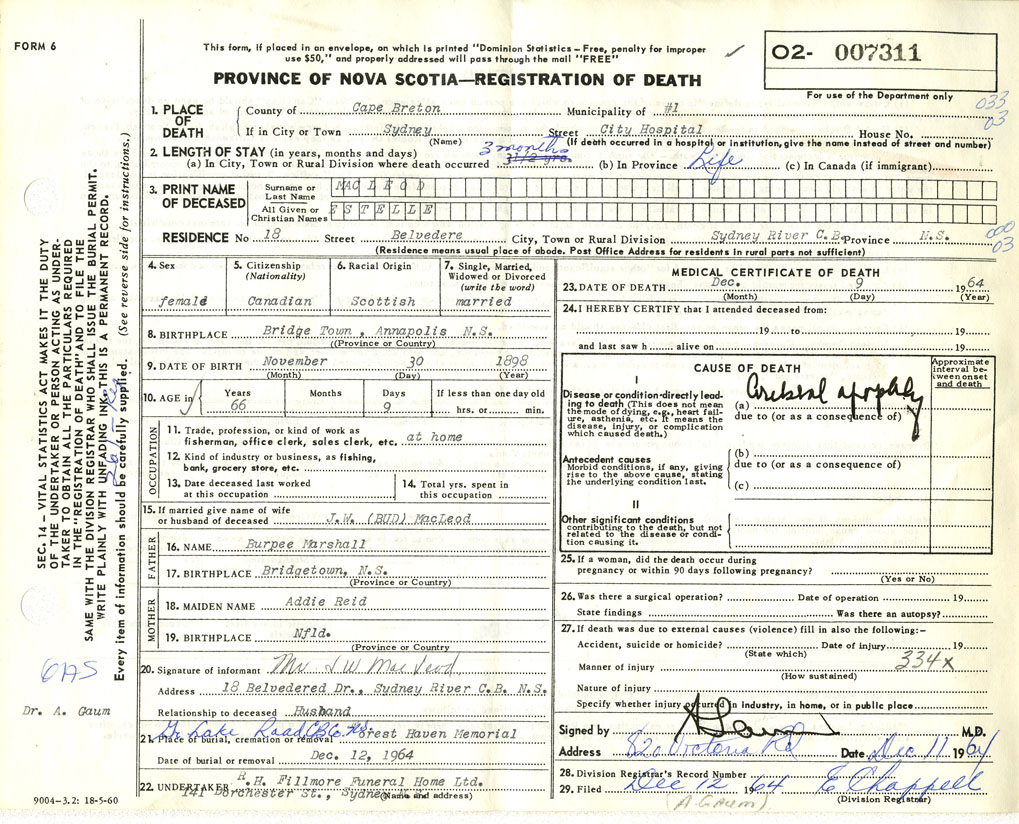 FORM 6
This form, if placed in an envelope, on which is printed "Dominion Statistics – Free, penalty for improper
use $50," and properly addressed will pass through the mail "FREE"
PROVINCE OF NOVA SCOTIA—REGISTRATION OF DEATH
02- 007311
For use of the Department only
033
03
1. PLACE OF DEATH
County of Cape Breton Municipality of #1
If in City or Town Sydney Street City Hospital House No.
(Name) (If death occurred in a hospital or institution, give the name instead of street and number)
2. LENGTH OF STAY (in years, months and days)
(a) In City, Town or Rural Division where death occurred 3 months (b) In Province Life (c) In Canada (if immigrant)
3. PRINT NAME OF DECEASED
Surname or Last Name MAC LEOD
All Given or Christian Names ESTELLE
000
03
RESIDENCE No 18 Street Belvedere City, Town or Rural Division Sydney River C.B. Province N.S.
(Residence means usual place of abode. Post Office Address for residents in rural parts not sufficient)
4. Sex
female
5. Citizenship
(Nationality)
Canadian
6. Racial Origin
Scottish
7. Single, Married,
Widowed or Divorced
(write the word)
married
8. BIRTHPLACE Bridge Town, Annapolis N.S.
((Province or Country)
9. DATE OF BIRTH November 30 1898
(Month) (Day) (Year)
10. AGE in
Years 66
Months
Days 9
If less than one day old
hrs. or min.
OCCUPATION
11. Trade, profession, or kind of work as
fisherman, office clerk, sales clerk, etc. at home
12. Kind of industry or business, as fishing,
bank, grocery store, etc.
13. Date deceased last worked
at this occupation
14. Total yrs. spent in
this occupation
15. If married give name of wife
or husband of deceased J.W. (BUD) MacLeod
FATHER
16. NAME Burpee Marshall
17. BIRTHPLACE Bridgetown, N.S.
(Province or Country)
MOTHER
18. MAIDEN NAME Addie Reid
19. BIRTHPLACE Nfld.
(Province or Country
20. Signature of informant Mr J W MacLeod
Address 18 Belvedered Dr., Sydney River C.B. N.S.
Relationship to deceased Husband
21. Place of burial, cremation or removal Gr Lake Road C.B.Co. N.S. Forest Haven Memorial
Date of burial or removal Dec. 12, 1964
22. UNDERTAKER R.H. Fillmore Funeral Home Ltd.
141 Dorchester St., Sydney
(Name and address)
9004-3.2: 18-5-60
MEDICAL CERTIFICATE OF DEATH
23. DATE OF DEATH Dec. 9 1964
(Month) (Day) (Year)
24. I HEREBY CERTIFY that I attended deceased from:
19 to 19
and last saw h alive on 19
CAUSE OF DEATH
Approximate
interval be-
tween onset
and death
I
Disease or condition directly lead-
ing to death (This does not mean
the mode of dying, e.g., heart fail-
ure, asthenia, etc. It means the
disease, injury, or complication
which caused death.)
(a) Cerebral apoplexy
due to (or as a consequence of)
Antecedent causes
Morbid conditions, if any, giving
rise to the above cause, stating
the underlying condition last.
(b)
due to (or as a consequence of)
(c)
II
Other significant conditions
contributing to the death, but not
related to the disease or condi-
tion causing it.
25. If a woman, did the death occur during
pregnancy or within 90 days following pregnancy?
(Yes or No)
26. Was there a surgical operation? Date of operation 19
State findings Was there an autopsy?
27. If death was due to external causes (violence) fill in also the following:–
Accident, suicide or homicide? Date of injury 19
(State which)
Manner of injury 334x
(How sustained)
Nature of injury
Specify whether injury occurred in industry, in home, or in public place
Signed by A Gaum M.D.
Address 520 Victoria Rd Date Dec 11 1964
28. Division Registrar's Record Number
29. Filed Dec 12 1964 E Chappell
(A GAUM) (Division Registrar)
SEC. 14 – VITAL STATISTICS ACT MAKES IT THE DUTY
OF THE UNDERTAKER OR PERSON ACTING AS UNDER-
TAKER TO OBTAIN ALL THE PARTICULARS REQUIRED
IN THE "REGISTRATION OF DEATH" AND TO FILE THE
SAME WITH THE DIVISION REGISTRAR WHO SHALL ISSUE THE BURIAL PERMIT.
WRITE PLAINLY WITH UNFADING INK. THIS IS A PERMANENT RECORD.
Every item of information should be carefully supplied. (See reverse side for instructions.)
OAS
Dr. A. Gaum